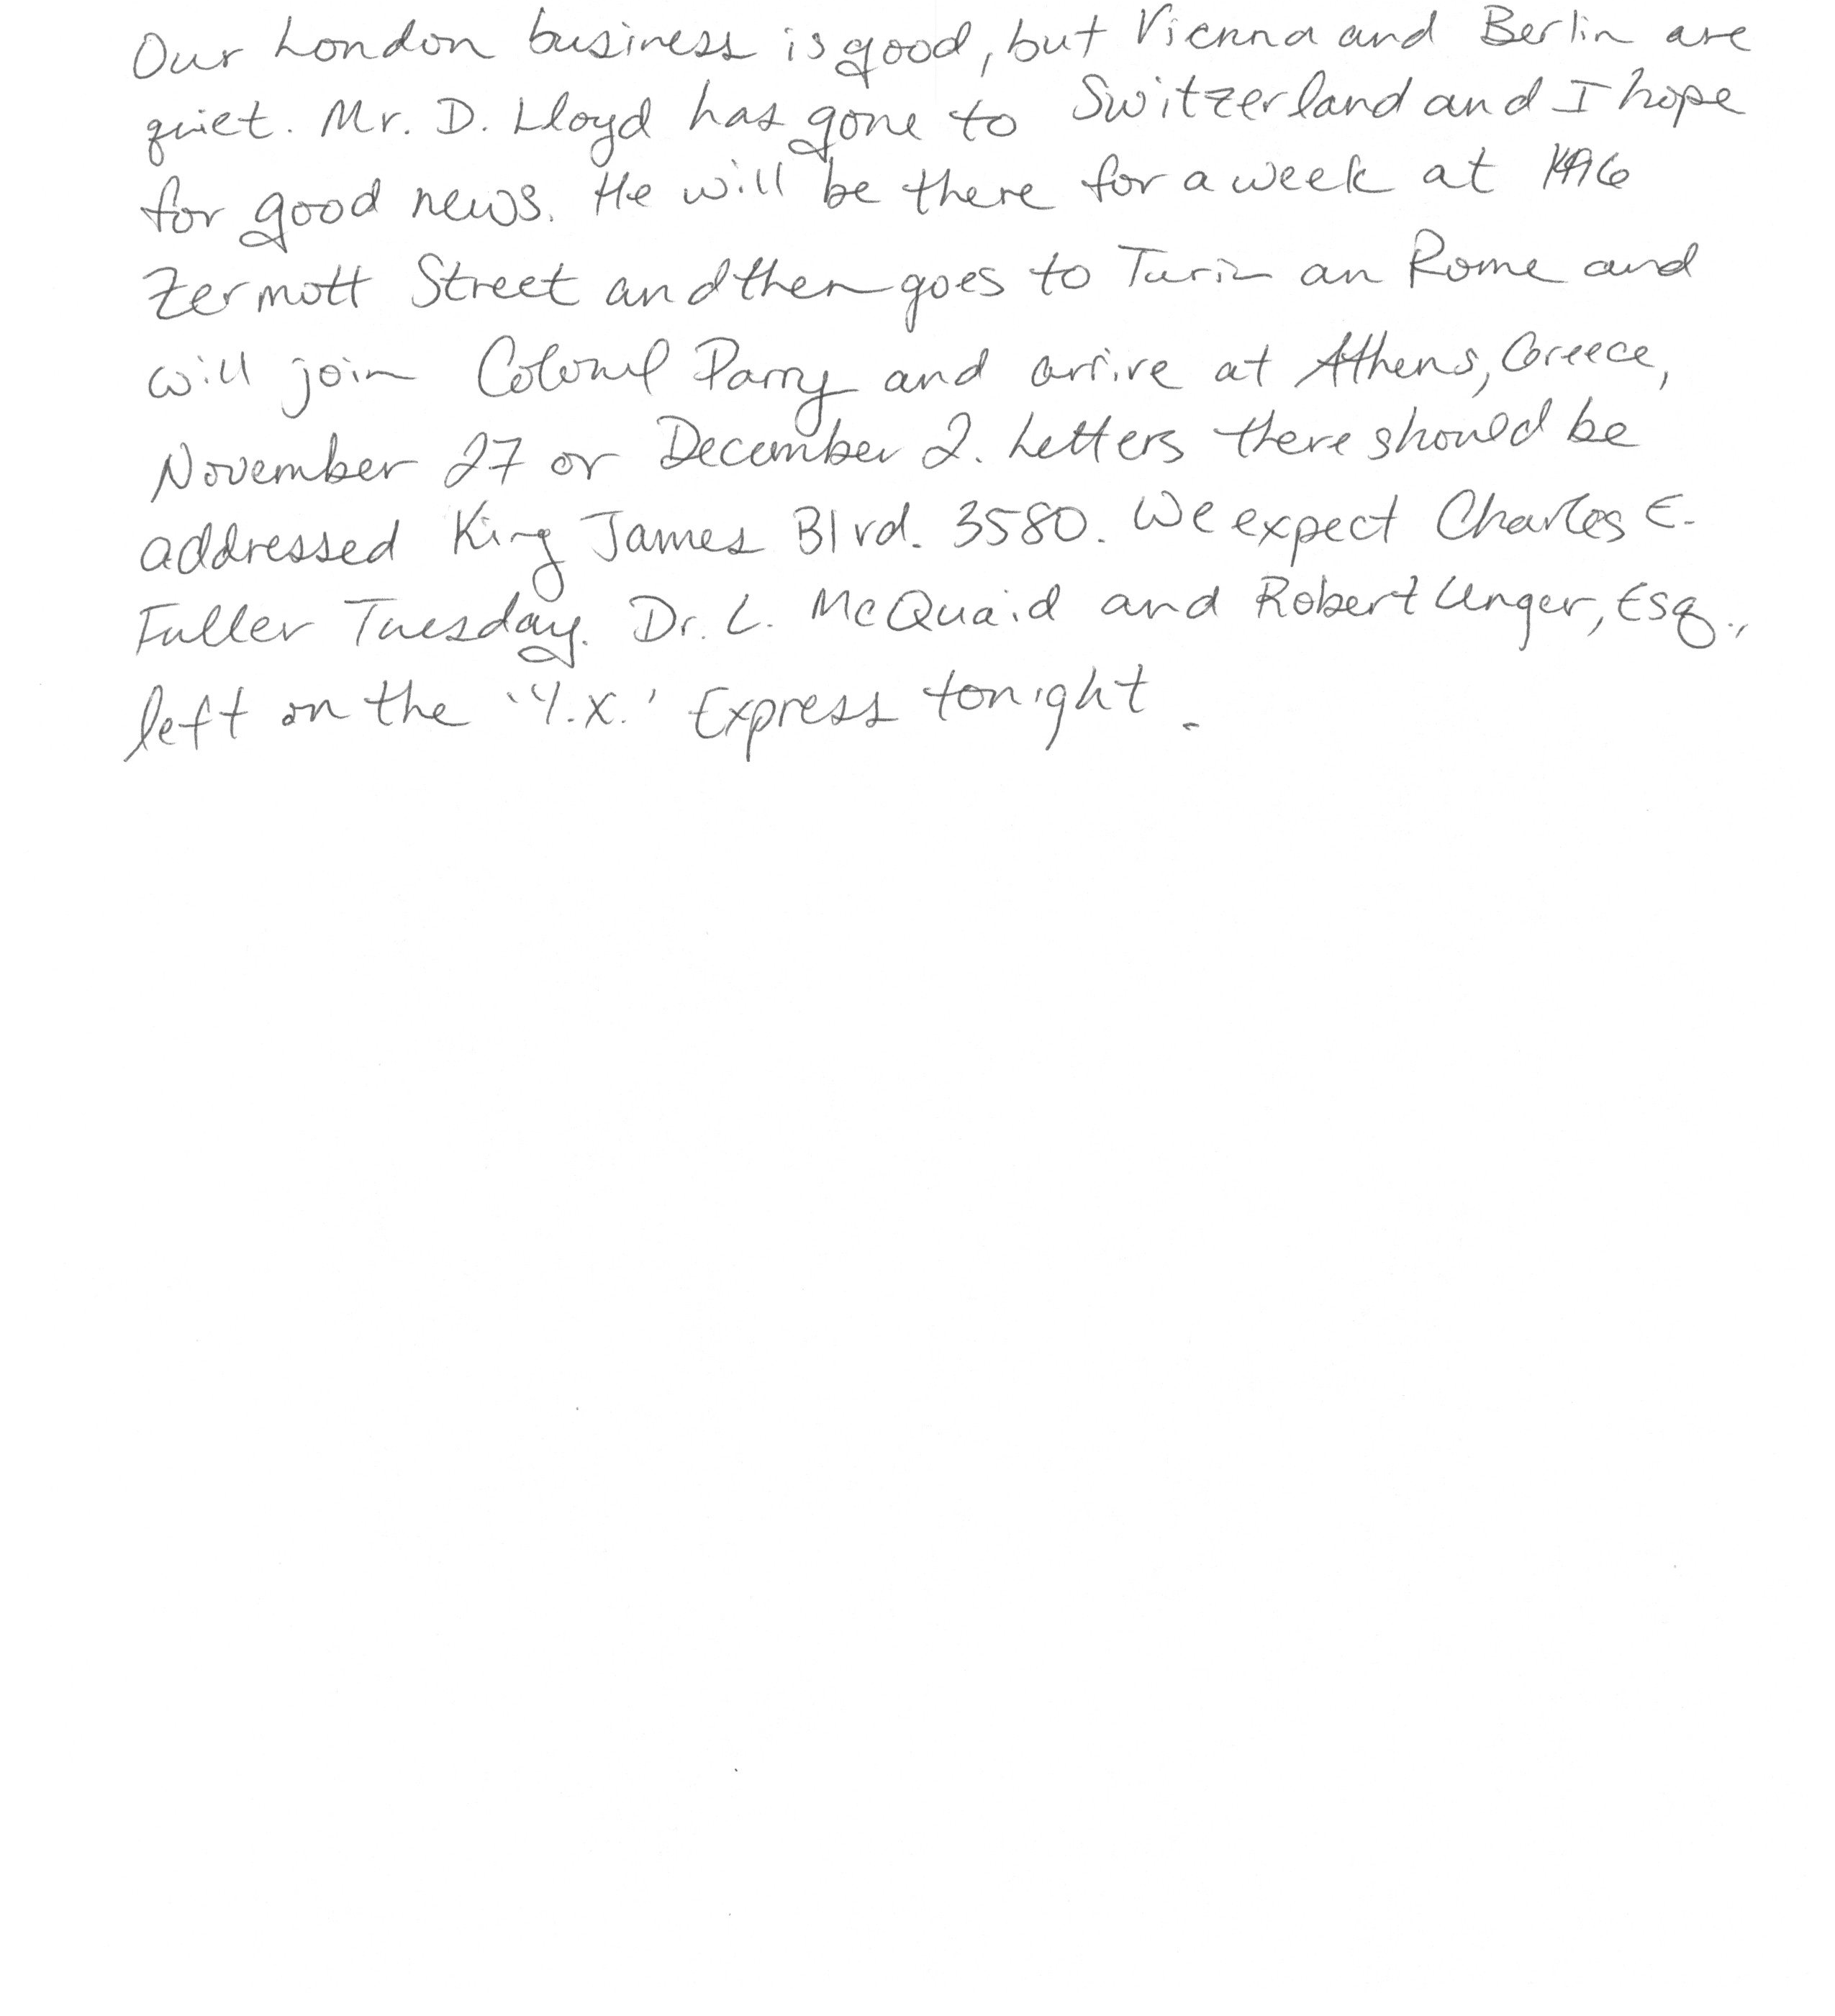 Our London business is good, but Vienna and Berlin are
quiet. Mr. D. Lloyd has gone to Switzerland and I hope
for good news. He will be there for a week at 1496
Zermott Street and then goes to Turin an Rome and
will join Colonel Parry and arrive at Athens, Greece,
November 27 or December 2. Letters there should be
addressed King James Blvd. 3580. We expect Charles E.
Fuller Tuesday. Dr. L. McQuaid and Robert Unger, Esq.,
left on the 'Y.X.' Express tonight.